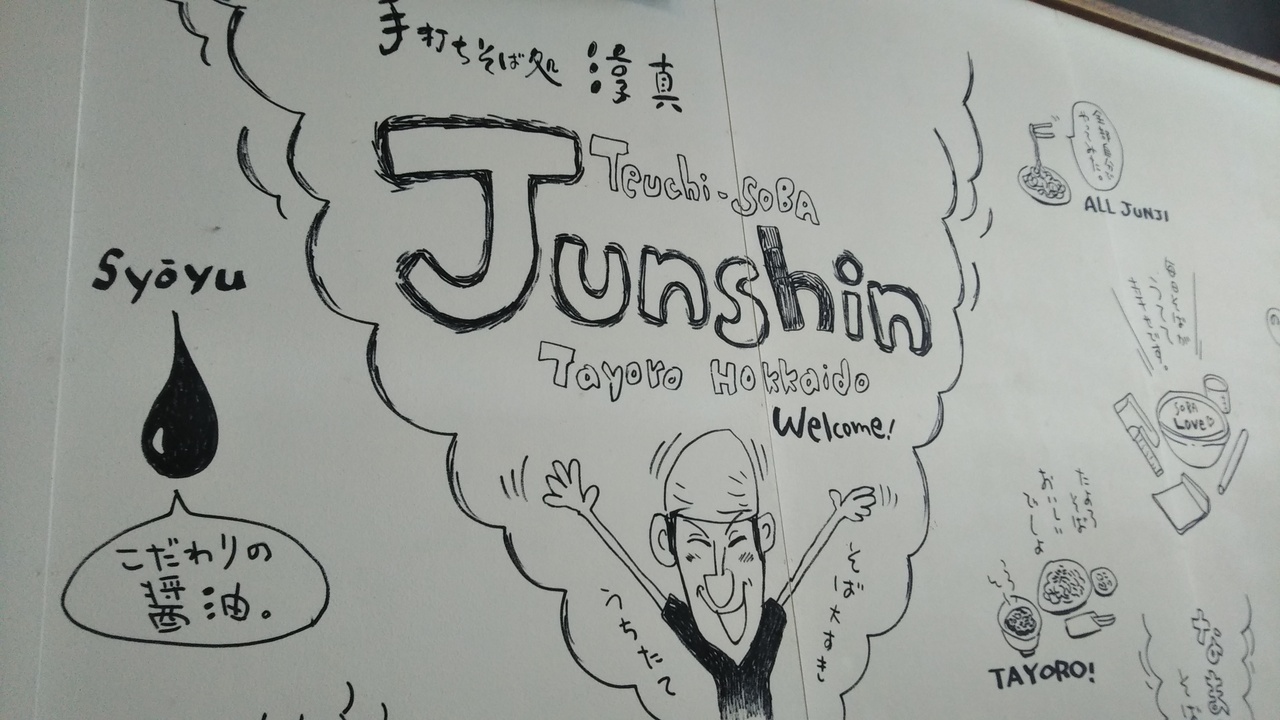 手打ちそば処 淳真
Teuchi-SOBA
Junshin
Tayoro Hokkaido
Welcome!
Syōyu
こだわりの
醤油。
うちたて
そば大すき
ALL JUNJI
SOBA
LOVE
たよろ
そば
おいしい
でしょ
TAYORO!